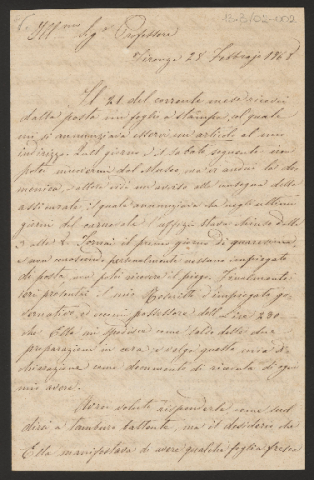 Ill.mo Sig.r Professore
Firenze 28 Febbrajo 1868
Il 21 del corrente mese ricevei
dalla posta un foglio a stampa, al quale
mi si annunziava esservi un articolo al mio
indirizzo. Quel giorno, e il sabato seguente non
potei muovermi dal Museo ma vi andai la do-
menica, e dette un avviso alla
assicurate, il quale annunziava che negli ultimi
giorni del carnevale l'uffizio stava chiuso dalle
3 alle Tornai il primo giorno di quaresima
e non conoscendo personalmente nessuno impiegato
di posta, non potei ricevere il piego. Finalmente
ieri presentai il mio d'impiegato go-
vernativo, e venni possessore delle Lire 280
che Ella mi spedisce come saldo delle due
preparazioni in cera, e valga questa mia di-
chiarazione come documento di ricevuta di ogni
mio avere.
Avrei voluto risponderle, come suol
dirsi a tamburo battente, ma il desiderio che
Ella manifestava di avere qualche foglia fresca